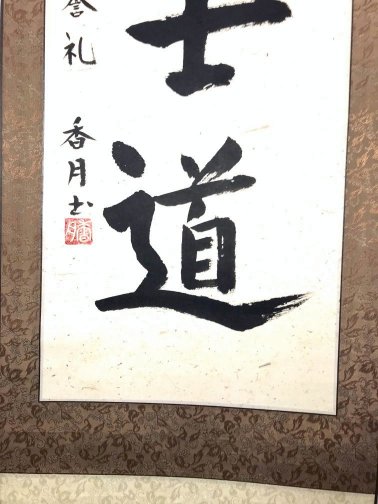 士道
誉礼 香月書